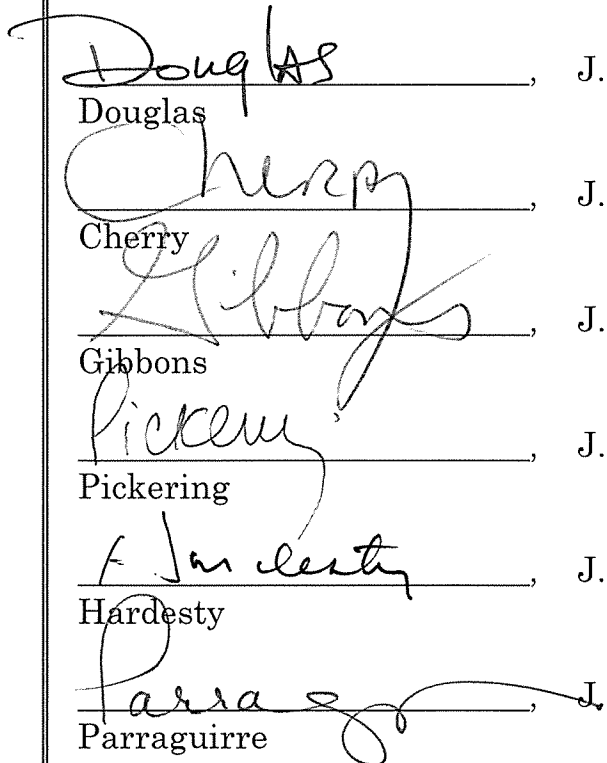 Douglas, J.
Douglas
Cherry, J.
Cherry
Gibbons, J.
Gibbons
Pickering, J.
Pickering
Hardesty, J.
Hardesty
Parraguirre, J.
Parraguirre